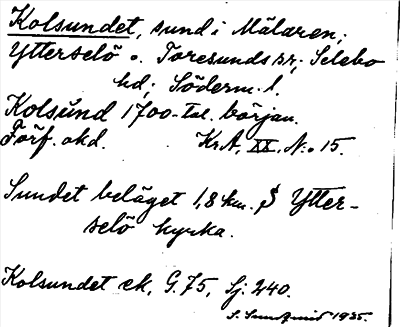 Kolsundet, sund i Mälaren;
Ytterselö o. Toresunds sr; Selebo
hd; Söderm. l.
Kolsund 1700-tal. början.
Förf. okd. KrA, XX, N:o 15.
Sundet beläget 1,8 km. S Ytter-
selö kyrka.
Kolsundet ek, G. 75, Sj. 240.
1935.